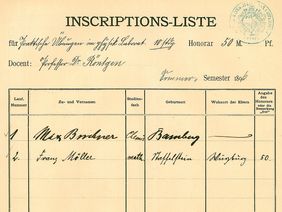 INSCRIPTIONS-LISTE
für Praktische Übungen im physik. Laborat. 18 stdg. Honorar 50 M. Pf.
Docent: Professor Dr. Röntgen
Sommer- Semester 18
Lauf. Nummer Zu- und Vornamen. Studien- fach Geburtsort Wohnort der Eltern Angabe des Honorars oder die Bemerkung
1 Max Chemie Bamberg
2. Franz Möller math. Augsburg 50.